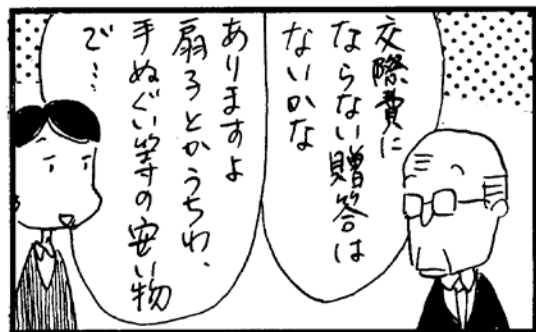 交際費に
ならない贈答は
ないかな
ありますよ
扇子とかうちわ、
手ぬぐい等の安い物
で…